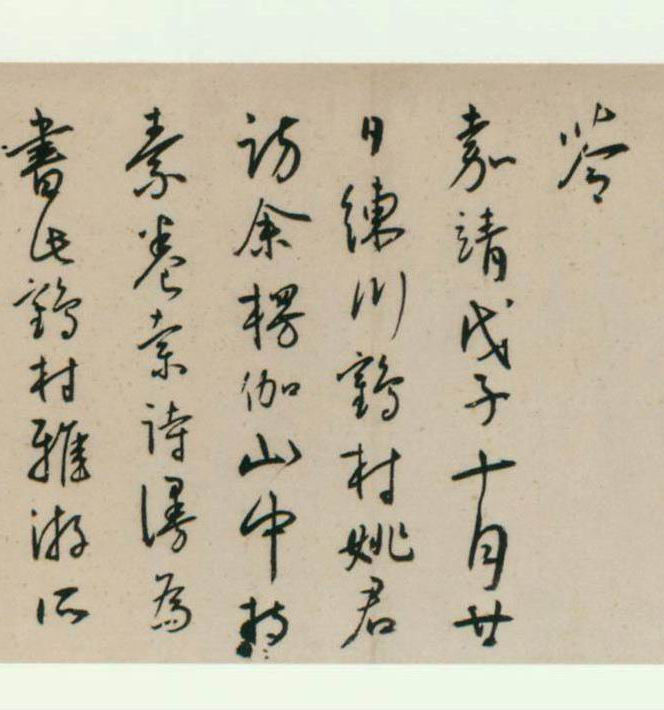 苓
嘉靖戊子十月廿
日練川鶴村姚君
訪余楞伽山中持
素卷索詩漫為
書此鶴村雅游所